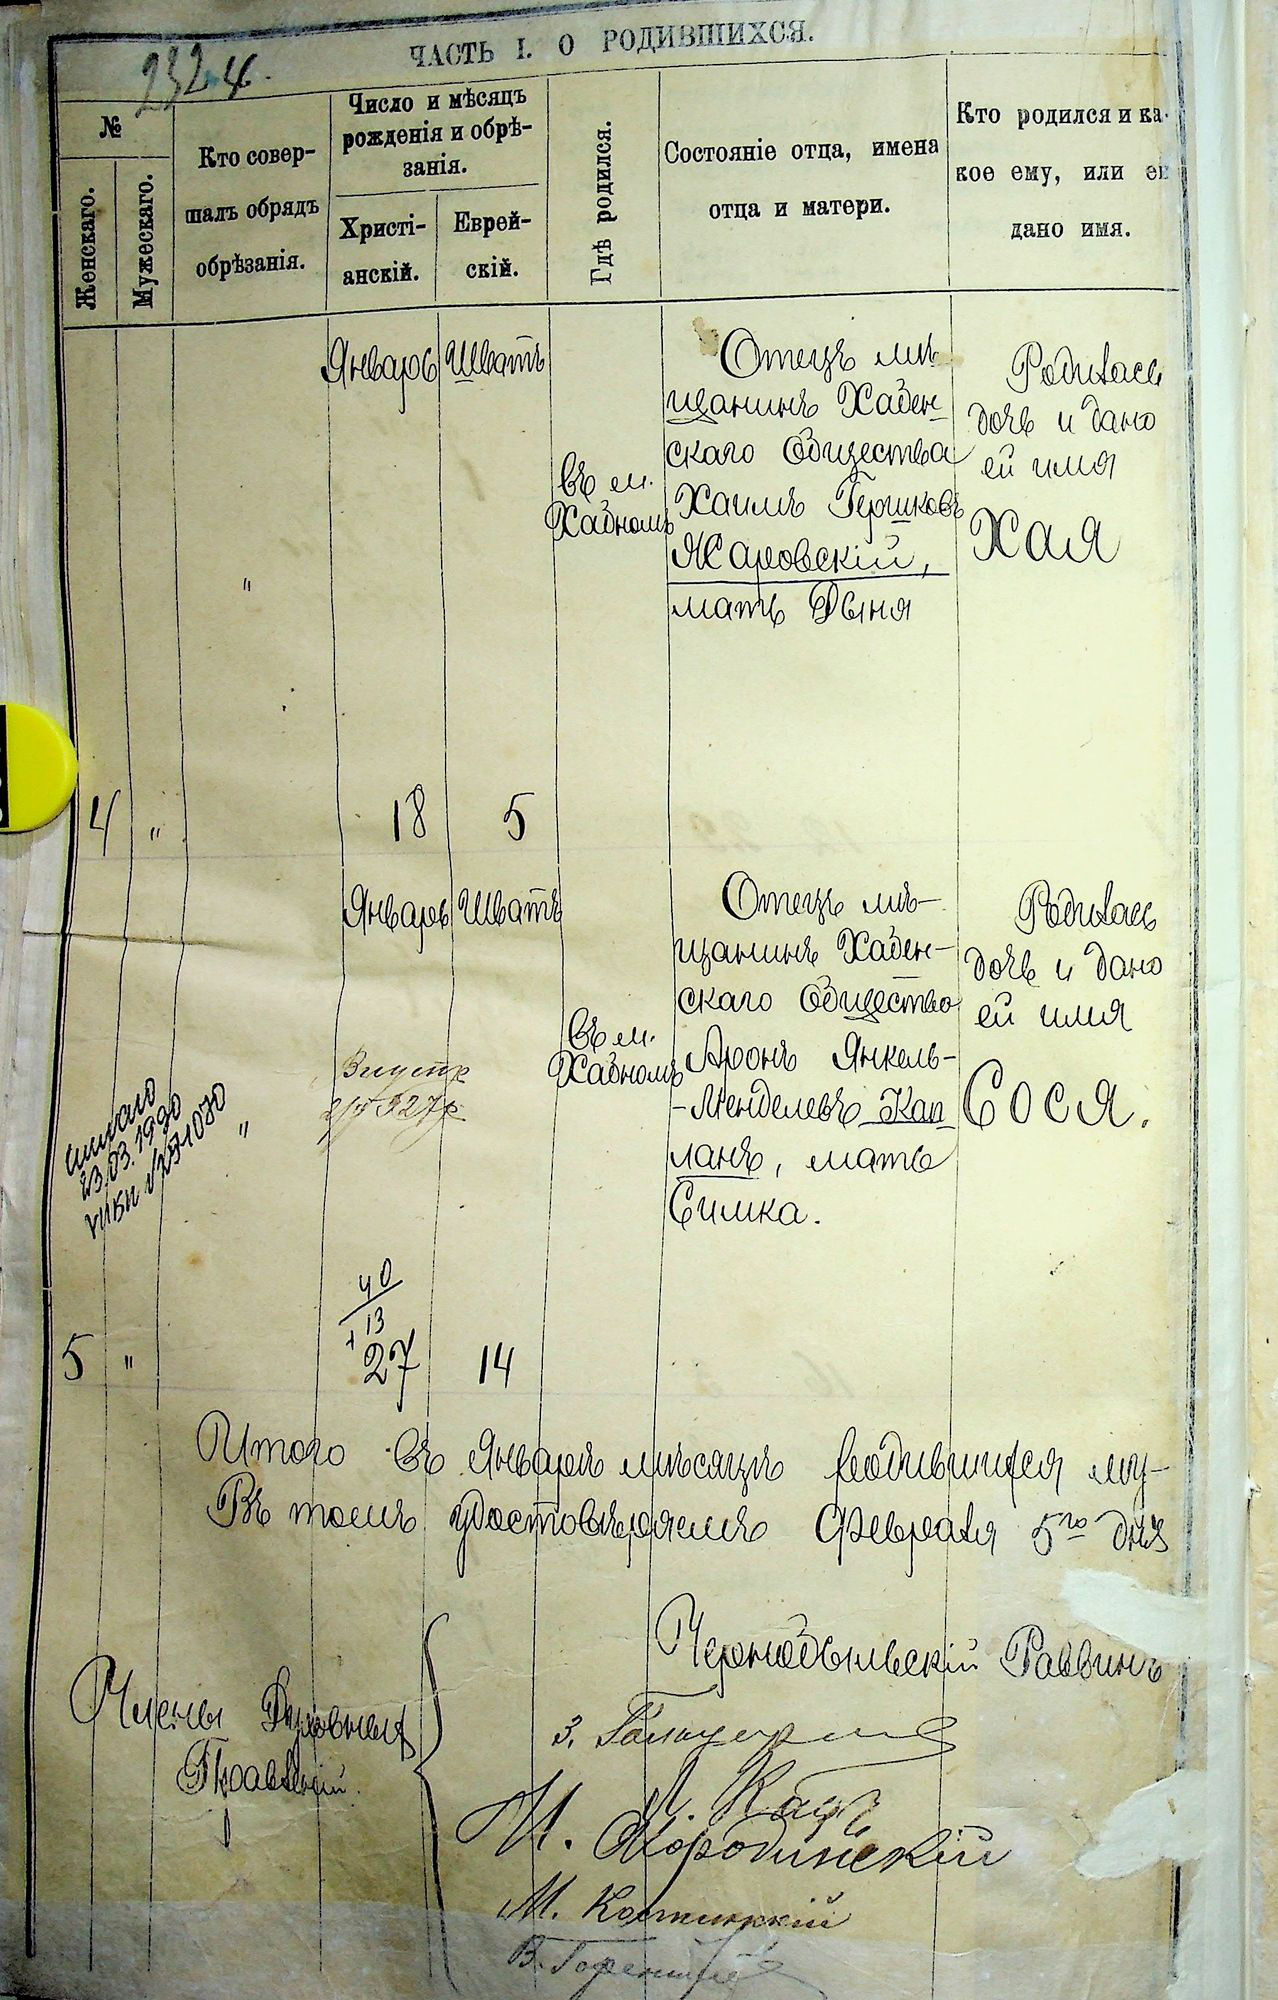 2324.
ЧАСТЬ I. О РОДИВШИХСЯ.
№
Женскаго.
Мужескаго.
Кто совер-
шалъ обрядъ
обрѣзанія.
Число и мѣсяцъ
рожденія и обрѣ-
занія.
Христі-
анскій.
Еврей-
скій.
Гдѣ родился.
Состояніе отца, имена
отца и матери.
Кто родился и ка-
кое ему, или ей
дано имя.
Январь Шватъ
въ м.
Хабномъ
Отецъ мѣ-
щанинъ Хабен-
скаго Общества
Хаимъ Гершковъ
Жаровскій,
мать Дыня
Родилась
дочь и дано
ей имя
Хая
"
4 " 18 5
Январь Шватъ
въ м.
Хабномъ
Отецъ мѣ-
щанинъ Хабен-
скаго Общества
Аронъ Янкель-
-Менделевъ Кап
ланъ, мать
Симка.
Родилась
дочь и дано
ей имя
Сося.
23.03.1990
"
40
13
5 " 27 14
Итого въ Январѣ мѣсяцѣ родившихся му-
Въ томъ удостовѣряемъ Февраля 5го дня
Чернобыльскій Раввинъ
Члены Духовныхъ
Правленій
З.
Л. Кацъ
И. Бородинскій
М.
В.